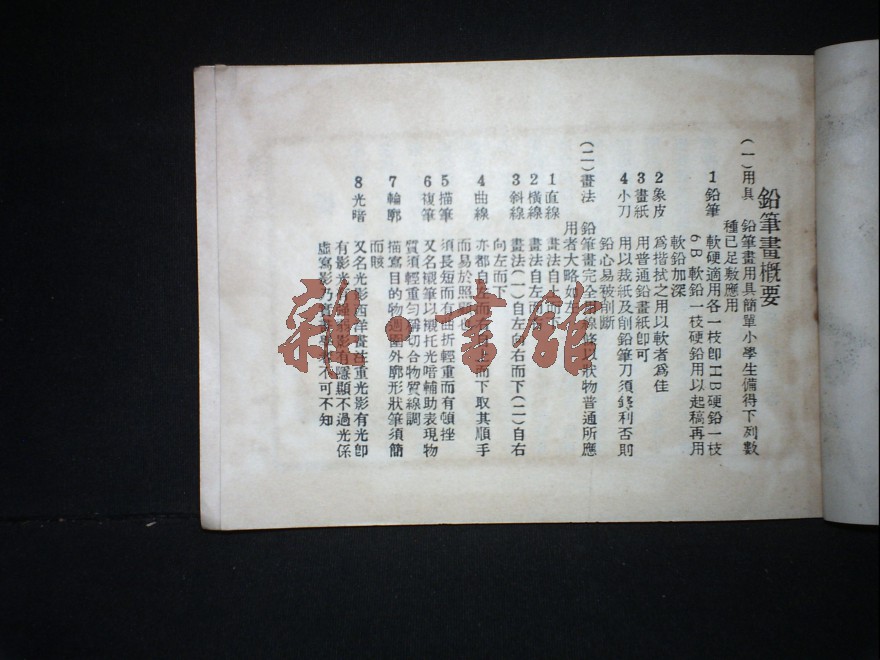 鉛筆畫概要
(一)用具　鉛筆畫用具簡單小學生備得下列數
種已足敷應用
1鉛筆　軟硬適用各一枝卽HB硬鉛一枝
6B軟鉛一枝硬鉛用以起稿再用
軟鉛加深
2象皮　爲揩拭之用以軟者爲佳
3畫紙　用普通鉛畫紙卽可
4小刀　用以裁紙及削鉛筆刀須鋒利否則
鉛心易被削斷
(二)畫法　鉛筆畫完全用線條以狀物普通所應
用者大略如左
1直線　畫法自上而下
2橫線　畫法自左而右
3斜線　畫法(一)自左向右而下(二)自右
向左而下
4曲線　亦都自左而右自上而下取其順手
而易於照
5描筆　須長短而有曲折輕重而有頓挫
6複筆　又名襯筆以襯托光暗輔助表現物
質須輕重勻稱切合物質線調
7輪廓　描寫目的物週圍外廓形狀筆須簡
而賅
8光暗　又名光影西洋畫注重光影有光卽
有影光影有隱顯不過光係
虛寫影乃不可不知
雜·書館